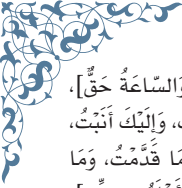 وَالسَّاعَةُ حَقٌّ]،
وَإِلَيْكَ أَنَبْتُ،
مَا قَدَّمْتُ، وَمَا